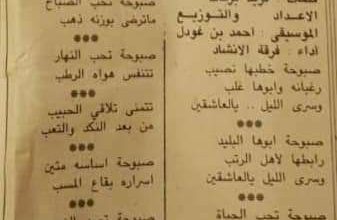 الاعداد والتوزيع
الموسيقي : احمد بن غودل
أداء : فرقة الانشاد
صبوحة خطبها نصيب
رغبانه وابوها غلب
وسرى الليل .. يالعاشقين
***
صبوحة ابوها البليد
رابطها لأهل الرتب
وسرى الليل يالعاشقين
***
صبوحة تحب الحياة
صبوحة تحب الصباح
ماترضى بوزنه ذهب
***
صبوحة تحب النهار
تتنفس هواه الرطب
***
تتمنى تلاقي الحبيب
من بعد النكد والتعب
***
صبوحة اساسه متين
اسراره بقاع المسب
***
صبوحة تحب